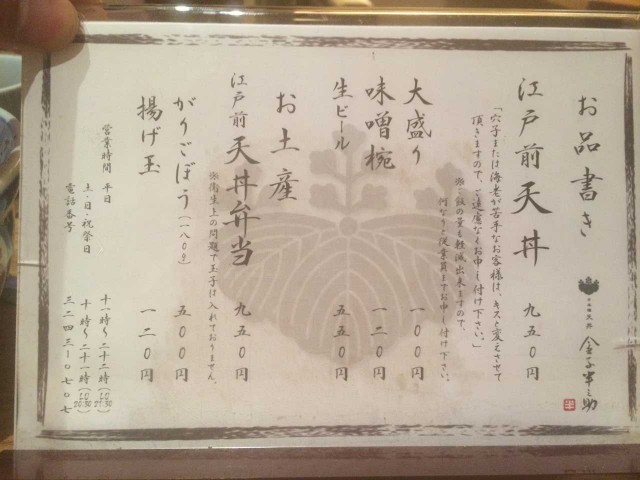 お品書き
金子半之助
江戸前天丼 九五〇円
「穴子または海老が苦手なお客様は、キスと変えさせて
頂きますので、ご遠慮なくお申し付け下さい。」
大盛り 一〇〇円
※ご飯の量も軽減出来ますので、
何なりと従業員までお申し付け下さい。
味噌椀 一二〇円
生ビール 五五〇円
お土産
江戸前天丼弁当 九五〇円
※衛生上の問題で玉子は入れておりません。
がりごぼう(一八〇g) 五〇〇円
揚げ玉 一二〇円
営業時間 平日 十一時〜二十二時
土・日・祝祭日 十時〜二十一時
電話番号 三二四三ー〇七〇七